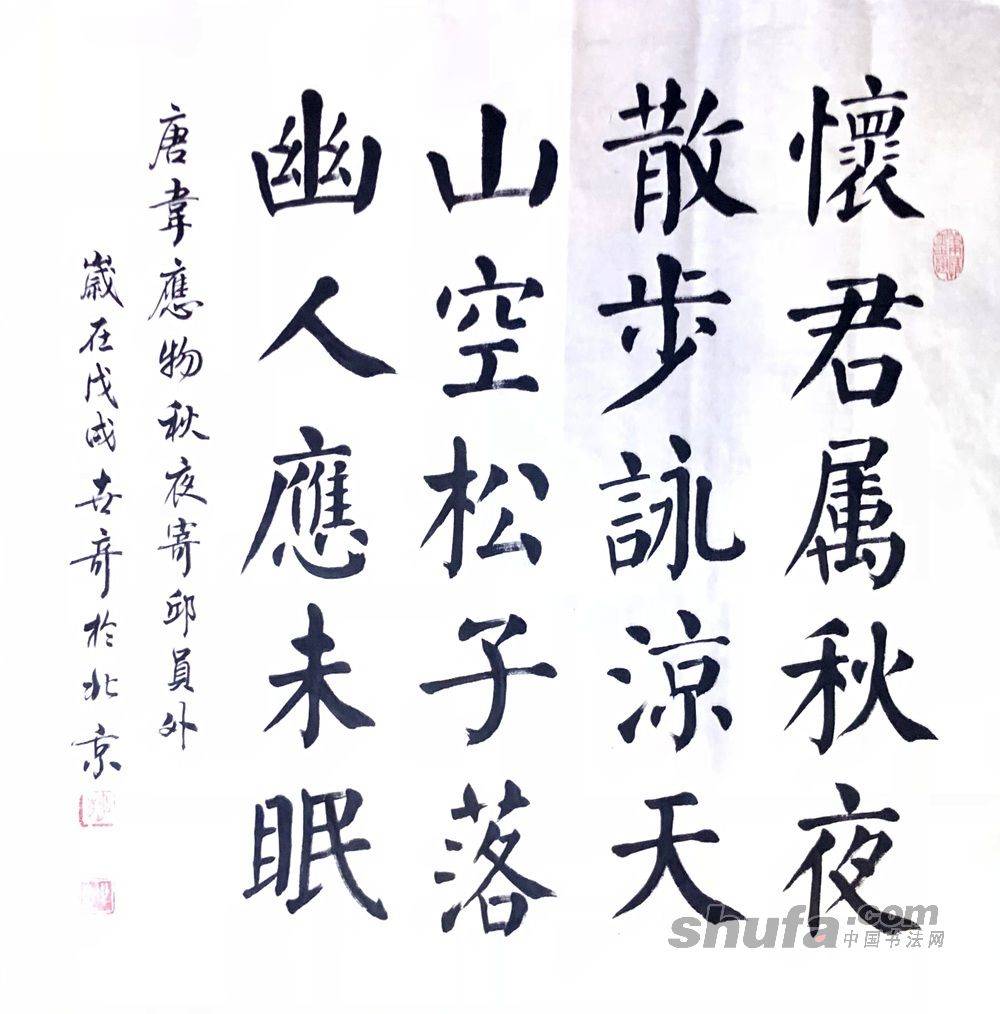 懷君属秋夜
散步詠涼天
山空松子落
幽人應未眠
唐韋應物秋夜寄邱員外
歲在戊戌世奇於北京
shufa.com
中国书法网